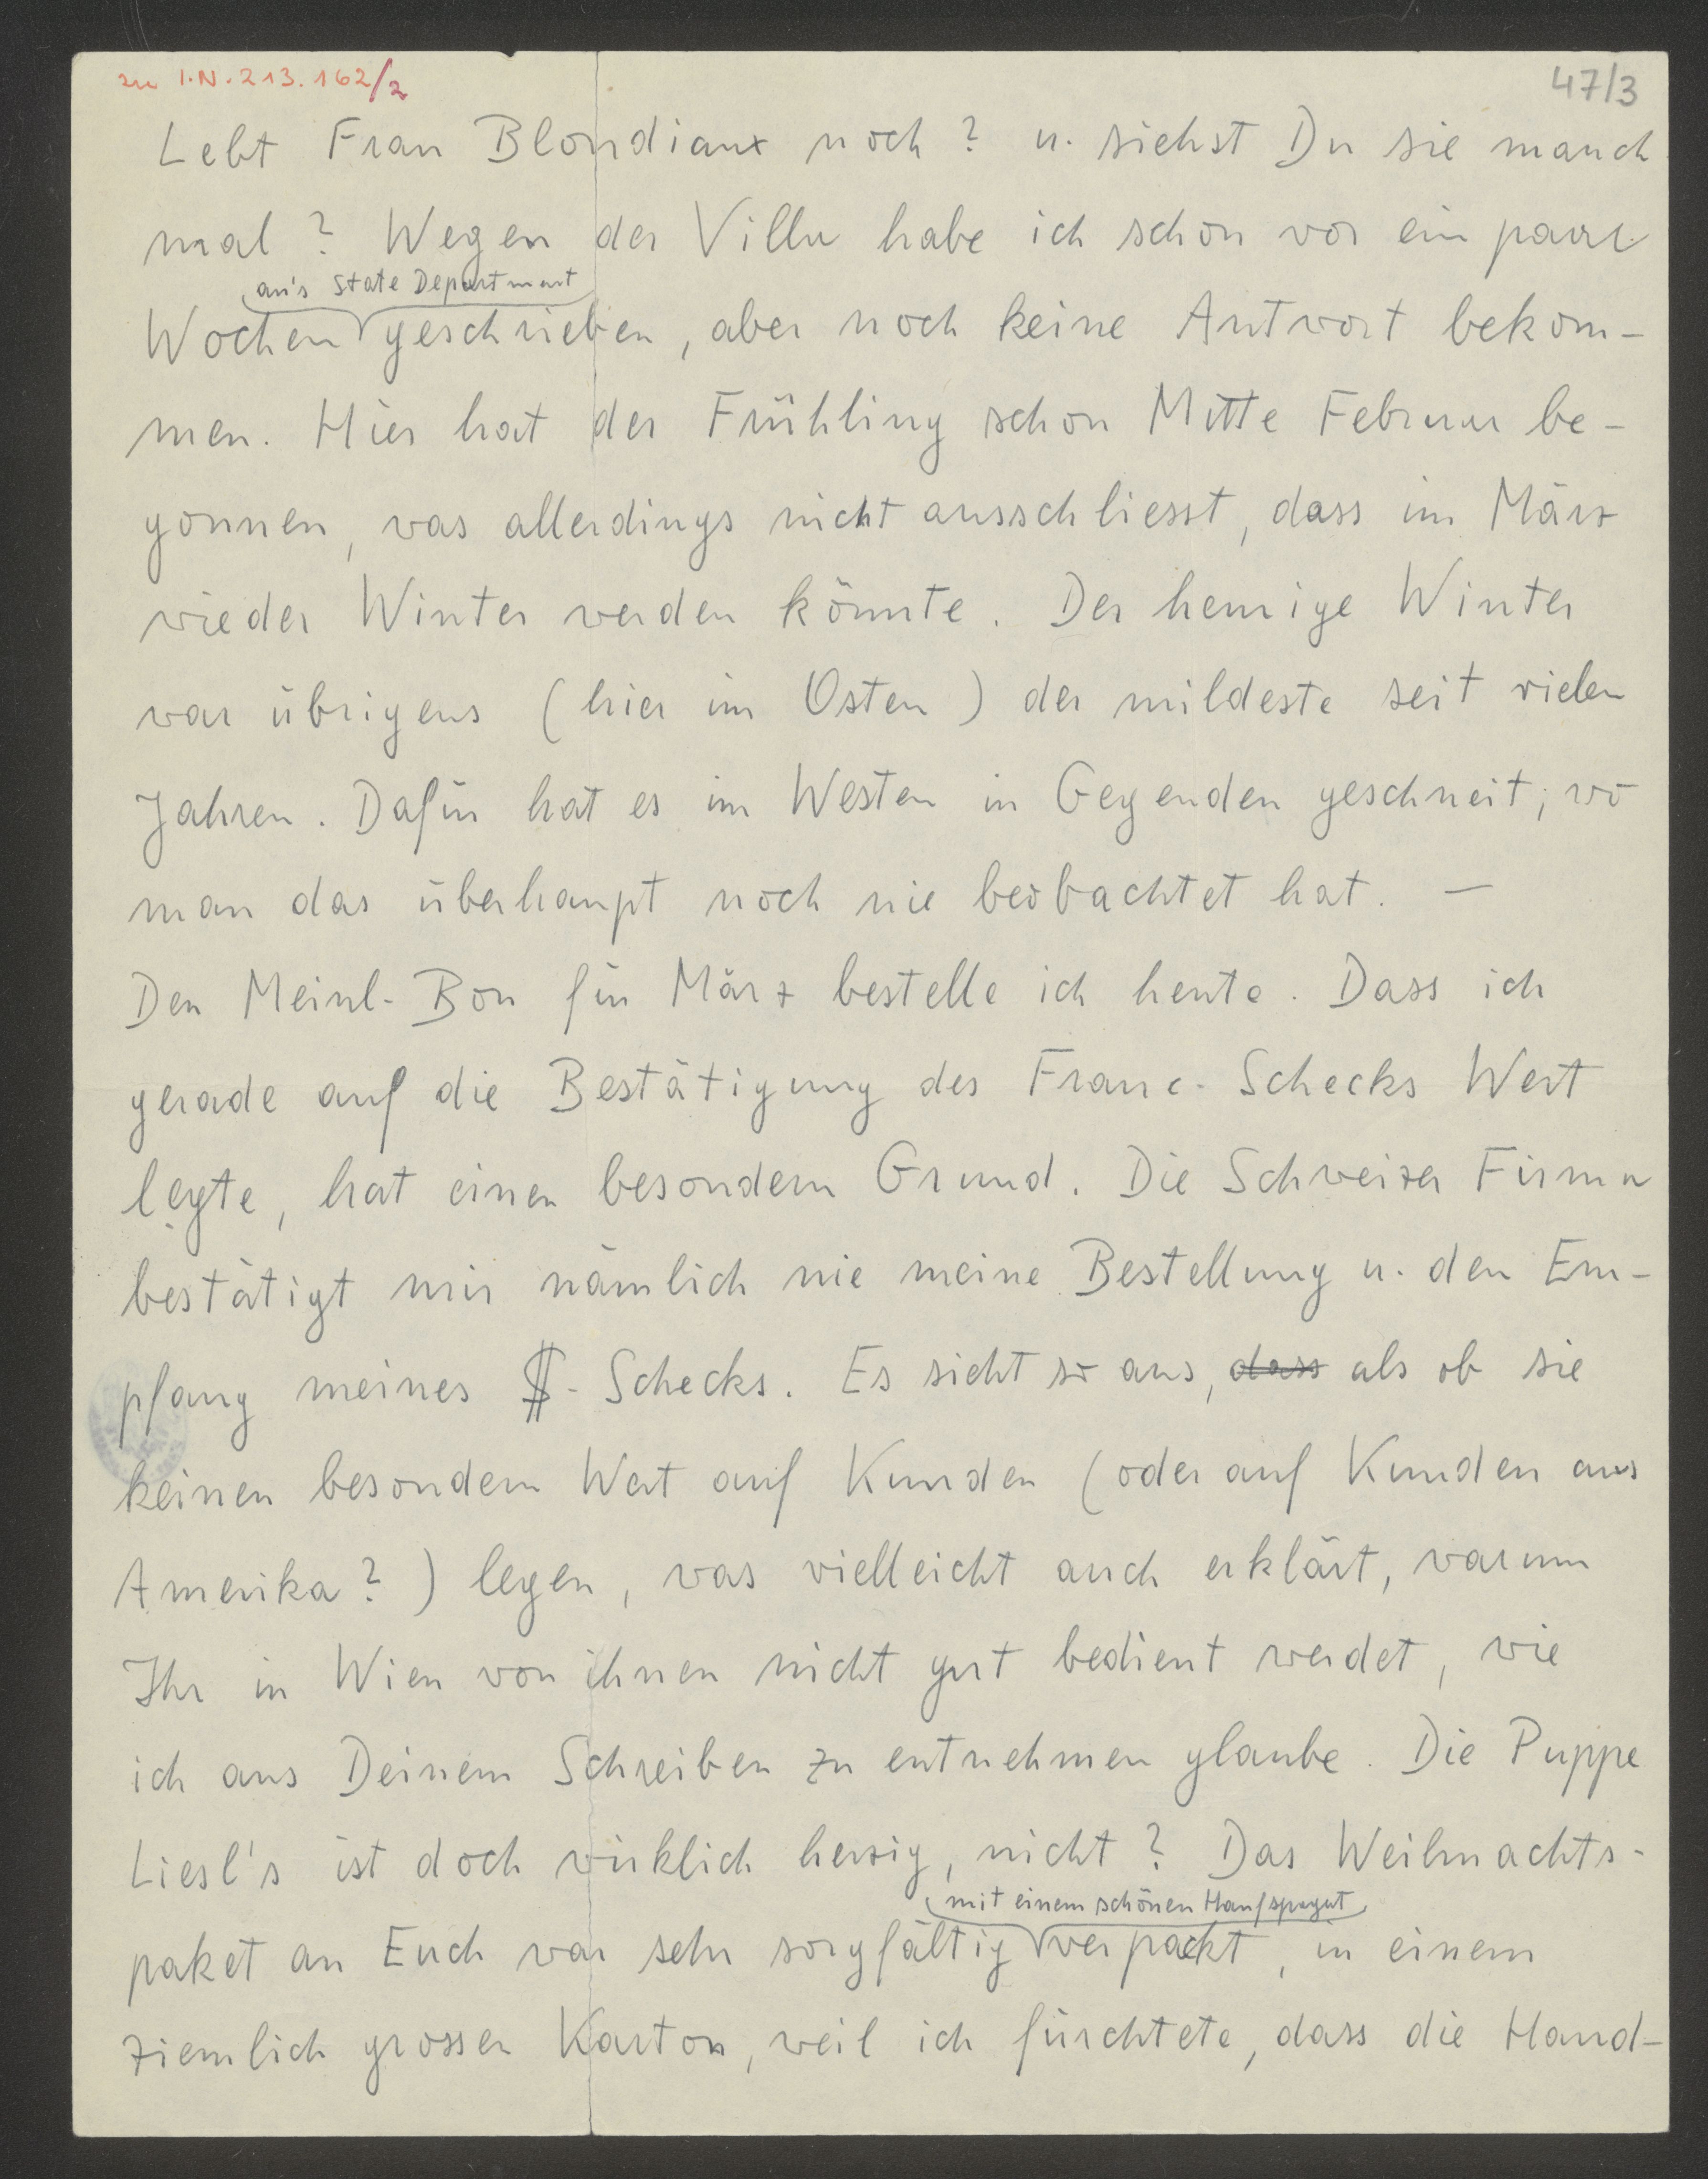 zu I.N. 213.162/2
47/3
Lebt Frau Blondiaux noch? u. siehst Du sie manch
mal? Wegen der Villa habe ich schon vor ein paar
an's State Department
Wochen geschrieben, aber noch keine Antwort bekom-
men. Hier hat der Frühling schon Mitte Februar be-
gonnen, was allerdings nicht ausschliesst, dass im März
wieder Winter werden könnte. Der heurige Winter
war übrigens (hier im Osten) der mildeste seit vielen
Jahren. Dafür hat es im Westen in Gegenden geschneit, wo
man das überhaupt noch nie beobachtet hat. —
Den Meinl-Bon für März bestelle ich heute. Dass ich
gerade auf die Bestätigung des Franc-Schecks Wert
legte, hat einen besondern Grund. Die Schweizer Firma
bestätigt mir nämlich nie meine Bestellung u. den Em-
pfang meines $-Schecks. Es sieht so aus, dass als ob sie
keinen besondern Wert auf Kunden (oder auf Kunden aus
Amerika?) legen, was vielleicht auch erklärt, warum
Ihr in Wien von ihnen nicht gut bedient werdet, wie
ich aus Deinem Schreiben zu entnehmen glaube. Die Puppe
Liesl's ist doch wirklich herzig, nicht? Das Weihnachts-
mit einem schönen Hanfspagat
paket an Euch war sehr sorgfältig verpackt, in einem
ziemlich grossen Karton, weil ich fürchtete, dass die Hand-